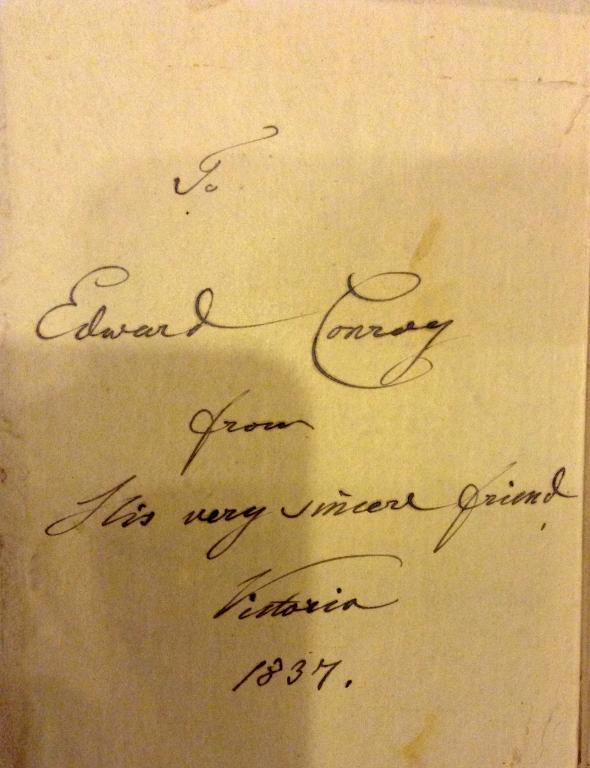 To
Edward Conroy
from
His very sincere friend,
Victoria
1837.